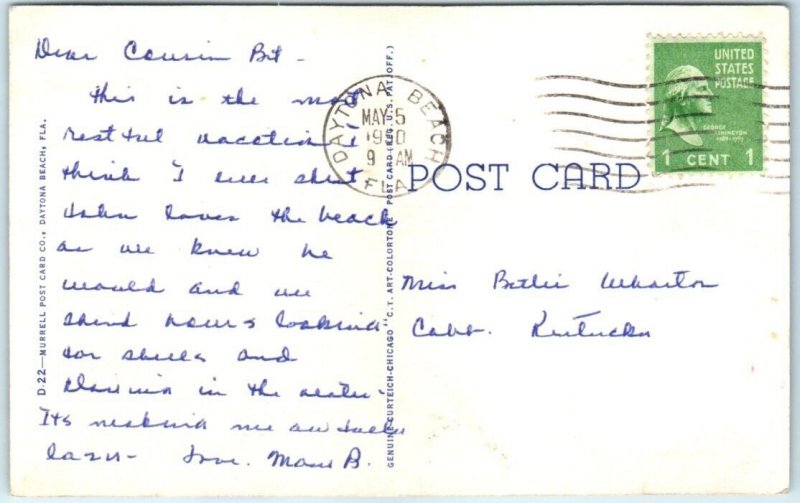 Dear Cousin Bet -
this is the most
restful vacation I
think I ever spent
John loves the beach
as we knew he
would and we
spend hours looking
for shells and
playing in the water.
Its making me awfully
lazy - Love. Mary B.
D-22—MURRELL POST CARD CO., DAYTONA BEACH, FLA.
GENUINE CURTEICH-CHICAGO "C.T. ART-COLORTONE" POST CARD (REG. U.S. PAT. OFF.)
DAYTONA BEACH
MAY 5
1950
9 AM
FLA
UNITED
STATES
POSTAGE
GEORGE
WASHINGTON
1 CENT 1
POST CARD
Miss Wharton
Kentucky